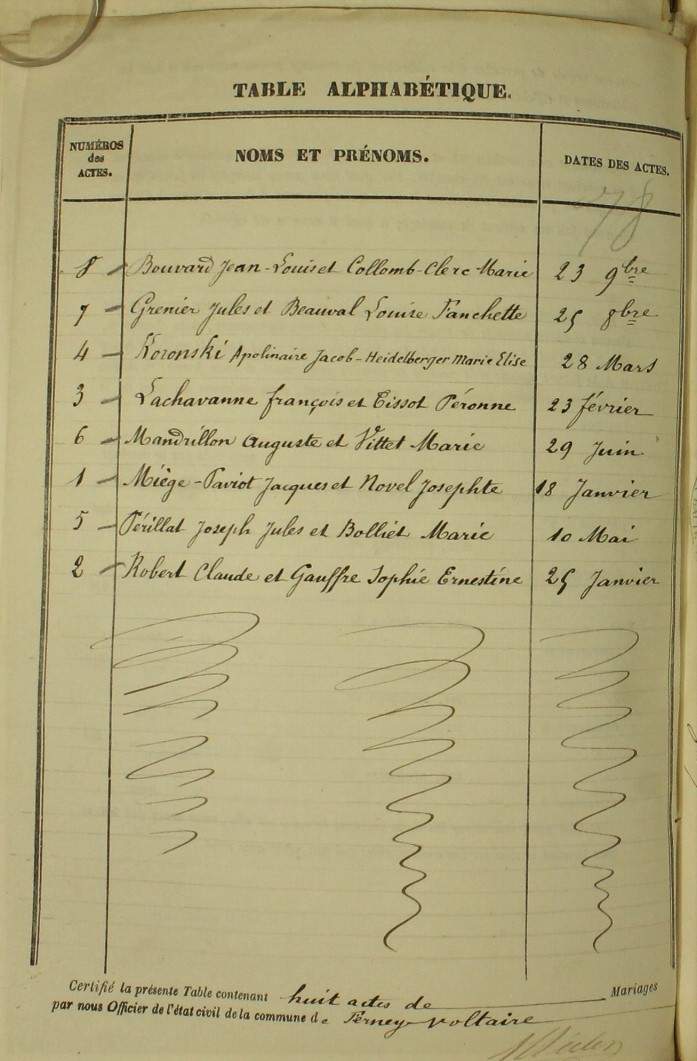 TABLE ALPHABÉTIQUE.
NUMÉROS des ACTES. NOMS ET PRÉNOMS. DATES DES ACTES.
78
8 Bouvard Jean-Louis et Collomb-Clerc Marie 23 9bre
7 Grenier Jules et Beauval Louise Fanchette 25 8bre
4 Koronski Apolinaire Jacob-Heidelberger Marie Elise 28 Mars
3 Lachavanne françois et Tissot Péronne 23 février
6 Mandrillon Auguste et Vittet Marie 29 Juin
1 Miège-Paviot Jacques et Novel Josephte 18 Janvier
5 Périllat Joseph Jules et Bolliet Marie 10 Mai
2 Robert Claude et Gauffre Sophie Ernestine 25 Janvier
Certifié la présente Table contenant huit actes de Mariages
par nous Officier de l'état civil de la commune de Ferney-Voltaire